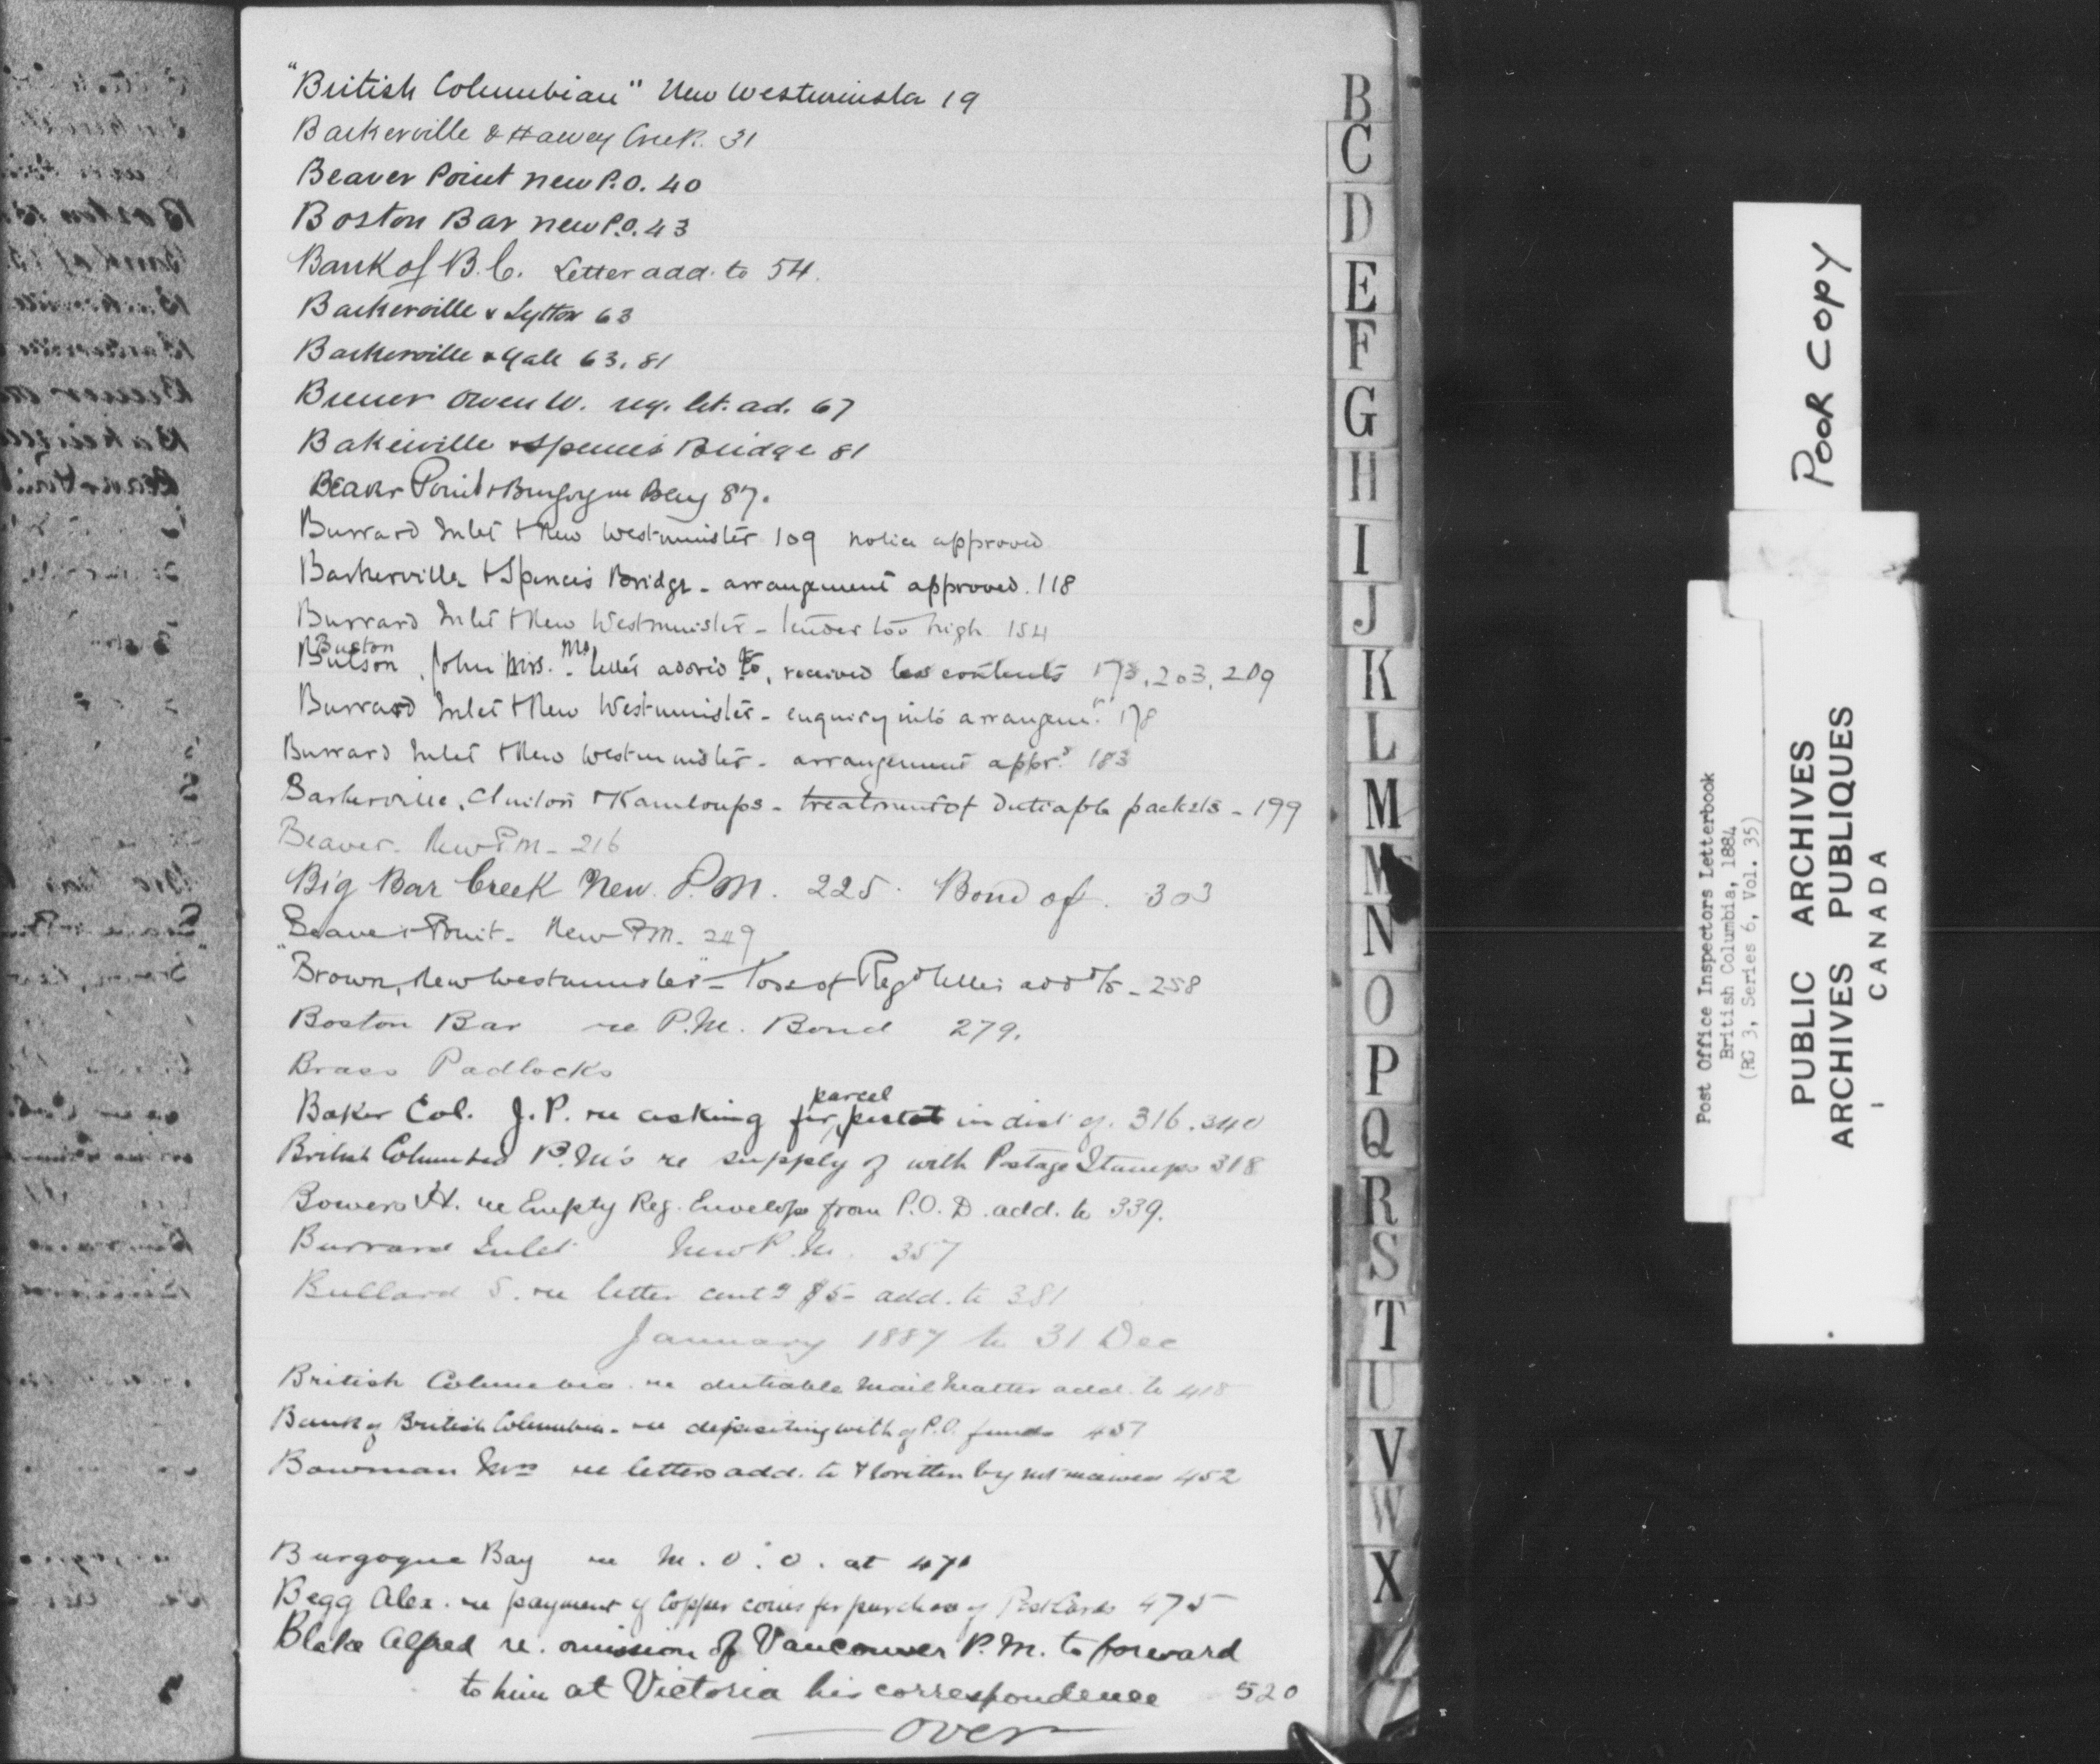 "British Columbian" New Westminster 19
Barkerville & Harvey Creek. 31
Beaver Point new P.O. 40
Boston Bar new P.O. 43
Bank of B.C. Letter add. to 54.
Barkerville & Lytton 63
Barkerville & Yale 63. 81
Brewer Owen W. reg. let. ad. 67
Bakerville & Spences Bridge 81
Beaver Point & Burgoyne Bay 87.
Burrard Inlet & New Westminster 109 notice approved
Barkerville & Spences Bridge - arrangement approved. 118
Burrard Inlet & New Westminster - tender too high 154
Buston
Mrs
Butson, John Mrs. - letter addr'd to, received less contents 173, 203, 209
Burrard Inlet & New Westminster - enquiry into arrangemt. 178
Burrard Inlet & New Westminster - arrangement appr.d 183
Barkerville, Clinton & Kamloops - treatment of dutiable packets - 199
Beaver - New P.M. - 216
Big Bar Creek New. P.M. 225. Bond of. 303
Beaver Point - New P.M. 249
"Brown, New Westminster" - loss of Regd letter addd to - 258
Boston Bar re P.M. Bond 279.
Brass Padlocks
parcel
Baker Col. J.P. re asking for post in dist of. 316. 340
British Columbia P.M's re supply of with Postage Stamps 318
Bowers H. re Empty Reg. Envelope from P.O.D. add. to 339.
Burrard Inlet New P.M. 357
Bullard S. re letter contg $5- add. to 381
January 1887 to 31 Dec
British Columbia re dutiable mail matter add. to 418
Bank of British Columbia - re depositing with of P.O. funds 437
Bowman Mrs re letters add. to & written by not received 452
Burgoyne Bay re M.O.O. at 471
Begg Alex. re payment of Copper coins for purchase of Post Cards 475
Blake Alfred re. omission of Vancouver P.M. to forward
to him at Victoria his correspondence 520
over
B
C
D
E
F
G
H
I
J
K
L
M
M
N
O
P
Q
R
S
T
U
V
W
X
Poor Copy
Post Office Inspectors Letterbook
British Columbia, 1884
(RG 3, Series 6, Vol. 35)
PUBLIC ARCHIVES
ARCHIVES PUBLIQUES
CANADA